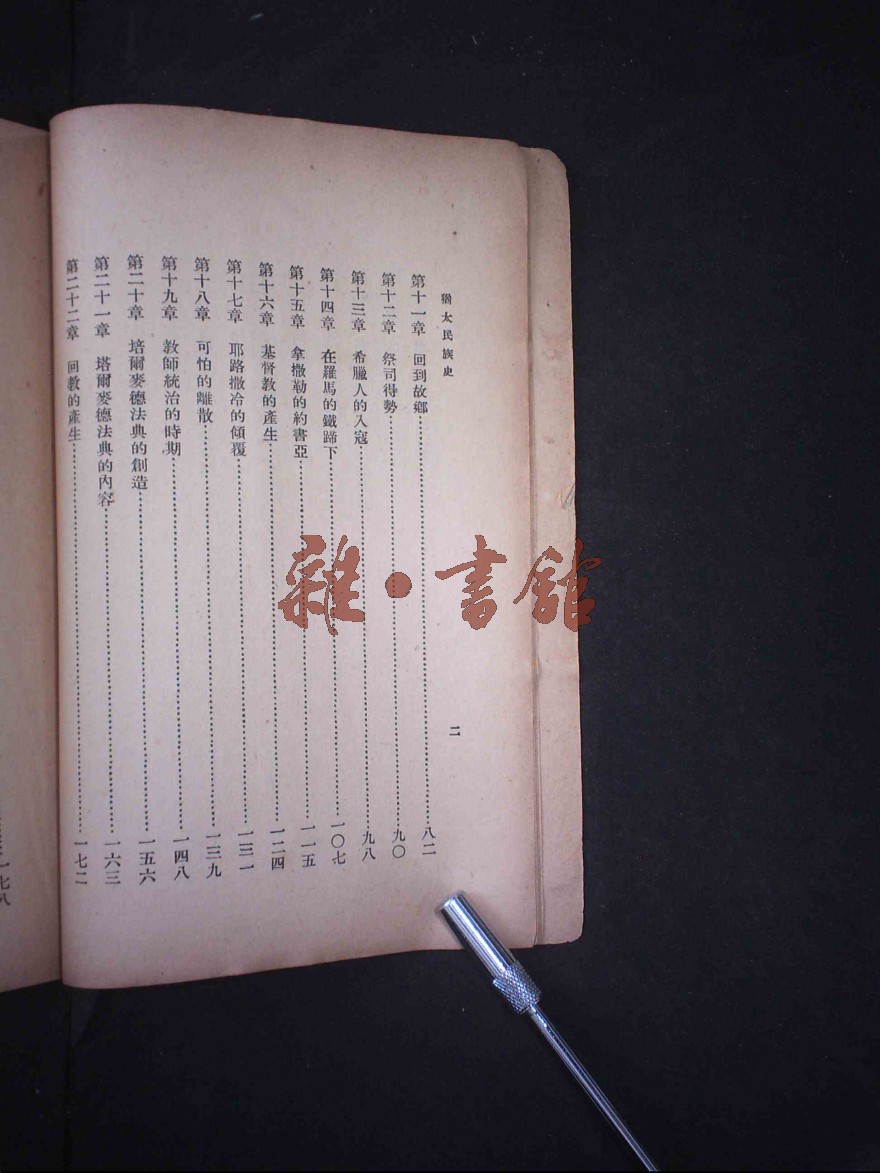 猶太民族史
二
第十一章 回到故鄉……八二
第十二章 祭司得勢……九〇
第十三章 希臘人的入寇……九八
第十四章 在羅馬的鐵蹄下……一〇七
第十五章 拿撒勒的約書亞……一一五
第十六章 基督教的產生……一二四
第十七章 耶路撒冷的傾覆……一三一
第十八章 可怕的離散……一三九
第十九章 教師統治的時期……一四八
第二十章 培爾麥德法典的創造……一五六
第二十一章 塔爾麥德法典的內容……一六三
第二十二章 回教的產生……一七二
一七八
雜·書館